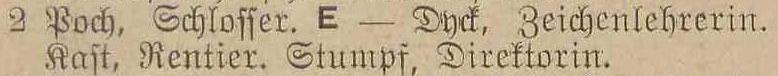 2 Poch, Schlosser. E — Dyck, Zeichenlehrerin.
Kast, Rentier. Stumpf, Direktorin.